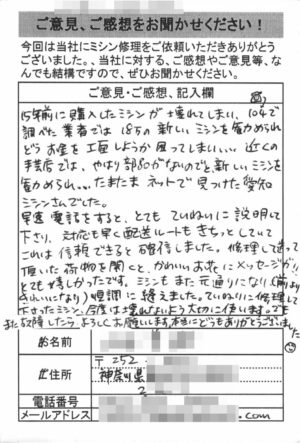 ご意見、ご感想をお聞かせください！
今回は当社にミシン修理をご依頼いただきありがとう
ございました。、当社に対する、ご感想やご意見等、な
んでも結構ですので、ぜひお聞かせください。
ご意見・ご感想、記入欄
15年前に購入したミシンが壊れてしまい、104で
調べた業者では18万の新しいミシンを勧められ
どうお金を工面しようか困ってしまい… 近くの
手芸店では、やはり部品がないのでと、新しいミシンを
勧められ… たまたまネットで見つけた愛知
ミシンさんでした。
早速電話をすると、とてもていねいに説明して
下さり、対応も早く配送ルートもきちっとしていて
これは信頼できると確信しました。修理して送って
頂いた荷物を開くと、かわいいお花にメッセージが!!
とても嬉しかったです。ミシンもまた元通りになり(前より
きれいになり)順調に縫えました。ていねいに修理して
下さったミシン、今度は壊れないよう大切に使います。でも
また故障したら、よろしくお願いします。本当にどうもありがとうございました
お名前
ご住所
〒252
神奈川県
2
電話番号
メールアドレス
.com